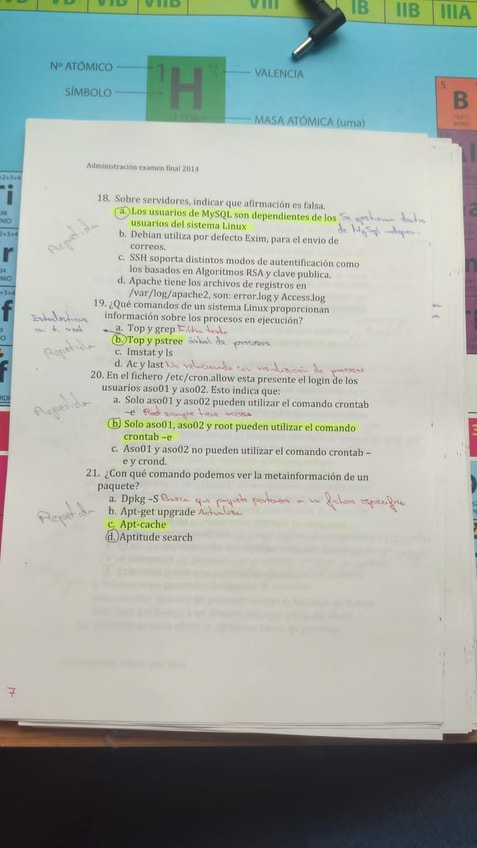 VIIB
VIII
IB
IIB
IIIA
Nº ATÓMICO
1
H
VALENCIA
SÍMBOLO
MASA ATÓMICA (uma)
5
B
Administración examen final 2014
18. Sobre servidores, indicar que afirmación es falsa.
a. Los usuarios de MySQL son dependientes de los
usuarios del sistema Linux
Se gestionan dentro
de MySql indepen.
Repetida
b. Debian utiliza por defecto Exim, para el envio de
correos.
c. SSH soporta distintos modos de autentificación como
los basados en Algoritmos RSA y clave publica.
d. Apache tiene los archivos de registros en
/var/log/apache2, son: error.log y Access.log
19. ¿Qué comandos de un sistema Linux proporcionan
información sobre los procesos en ejecución?
Estadísticas
en t. real
a. Top y grep Filtra texto
b. Top y pstree árbol de procesos
Repetida
c. Imstat y ls
d. Ac y last No relacionado con visualización de procesos
20. En el fichero /etc/cron.allow esta presente el login de los
usuarios aso01 y aso02. Esto indica que:
a. Solo aso01 y aso02 pueden utilizar el comando crontab
–e Root siempre tiene acceso
Repetida
b. Solo aso01, aso02 y root pueden utilizar el comando
crontab –e
c. Aso01 y aso02 no pueden utilizar el comando crontab –
e y crond.
21. ¿Con qué comando podemos ver la metainformación de un
paquete?
a. Dpkg –S Busca que paquete pertenece a un fichero especifico
b. Apt-get upgrade Actualiza
Repetida
c. Apt-cache
d. Aptitude search
7